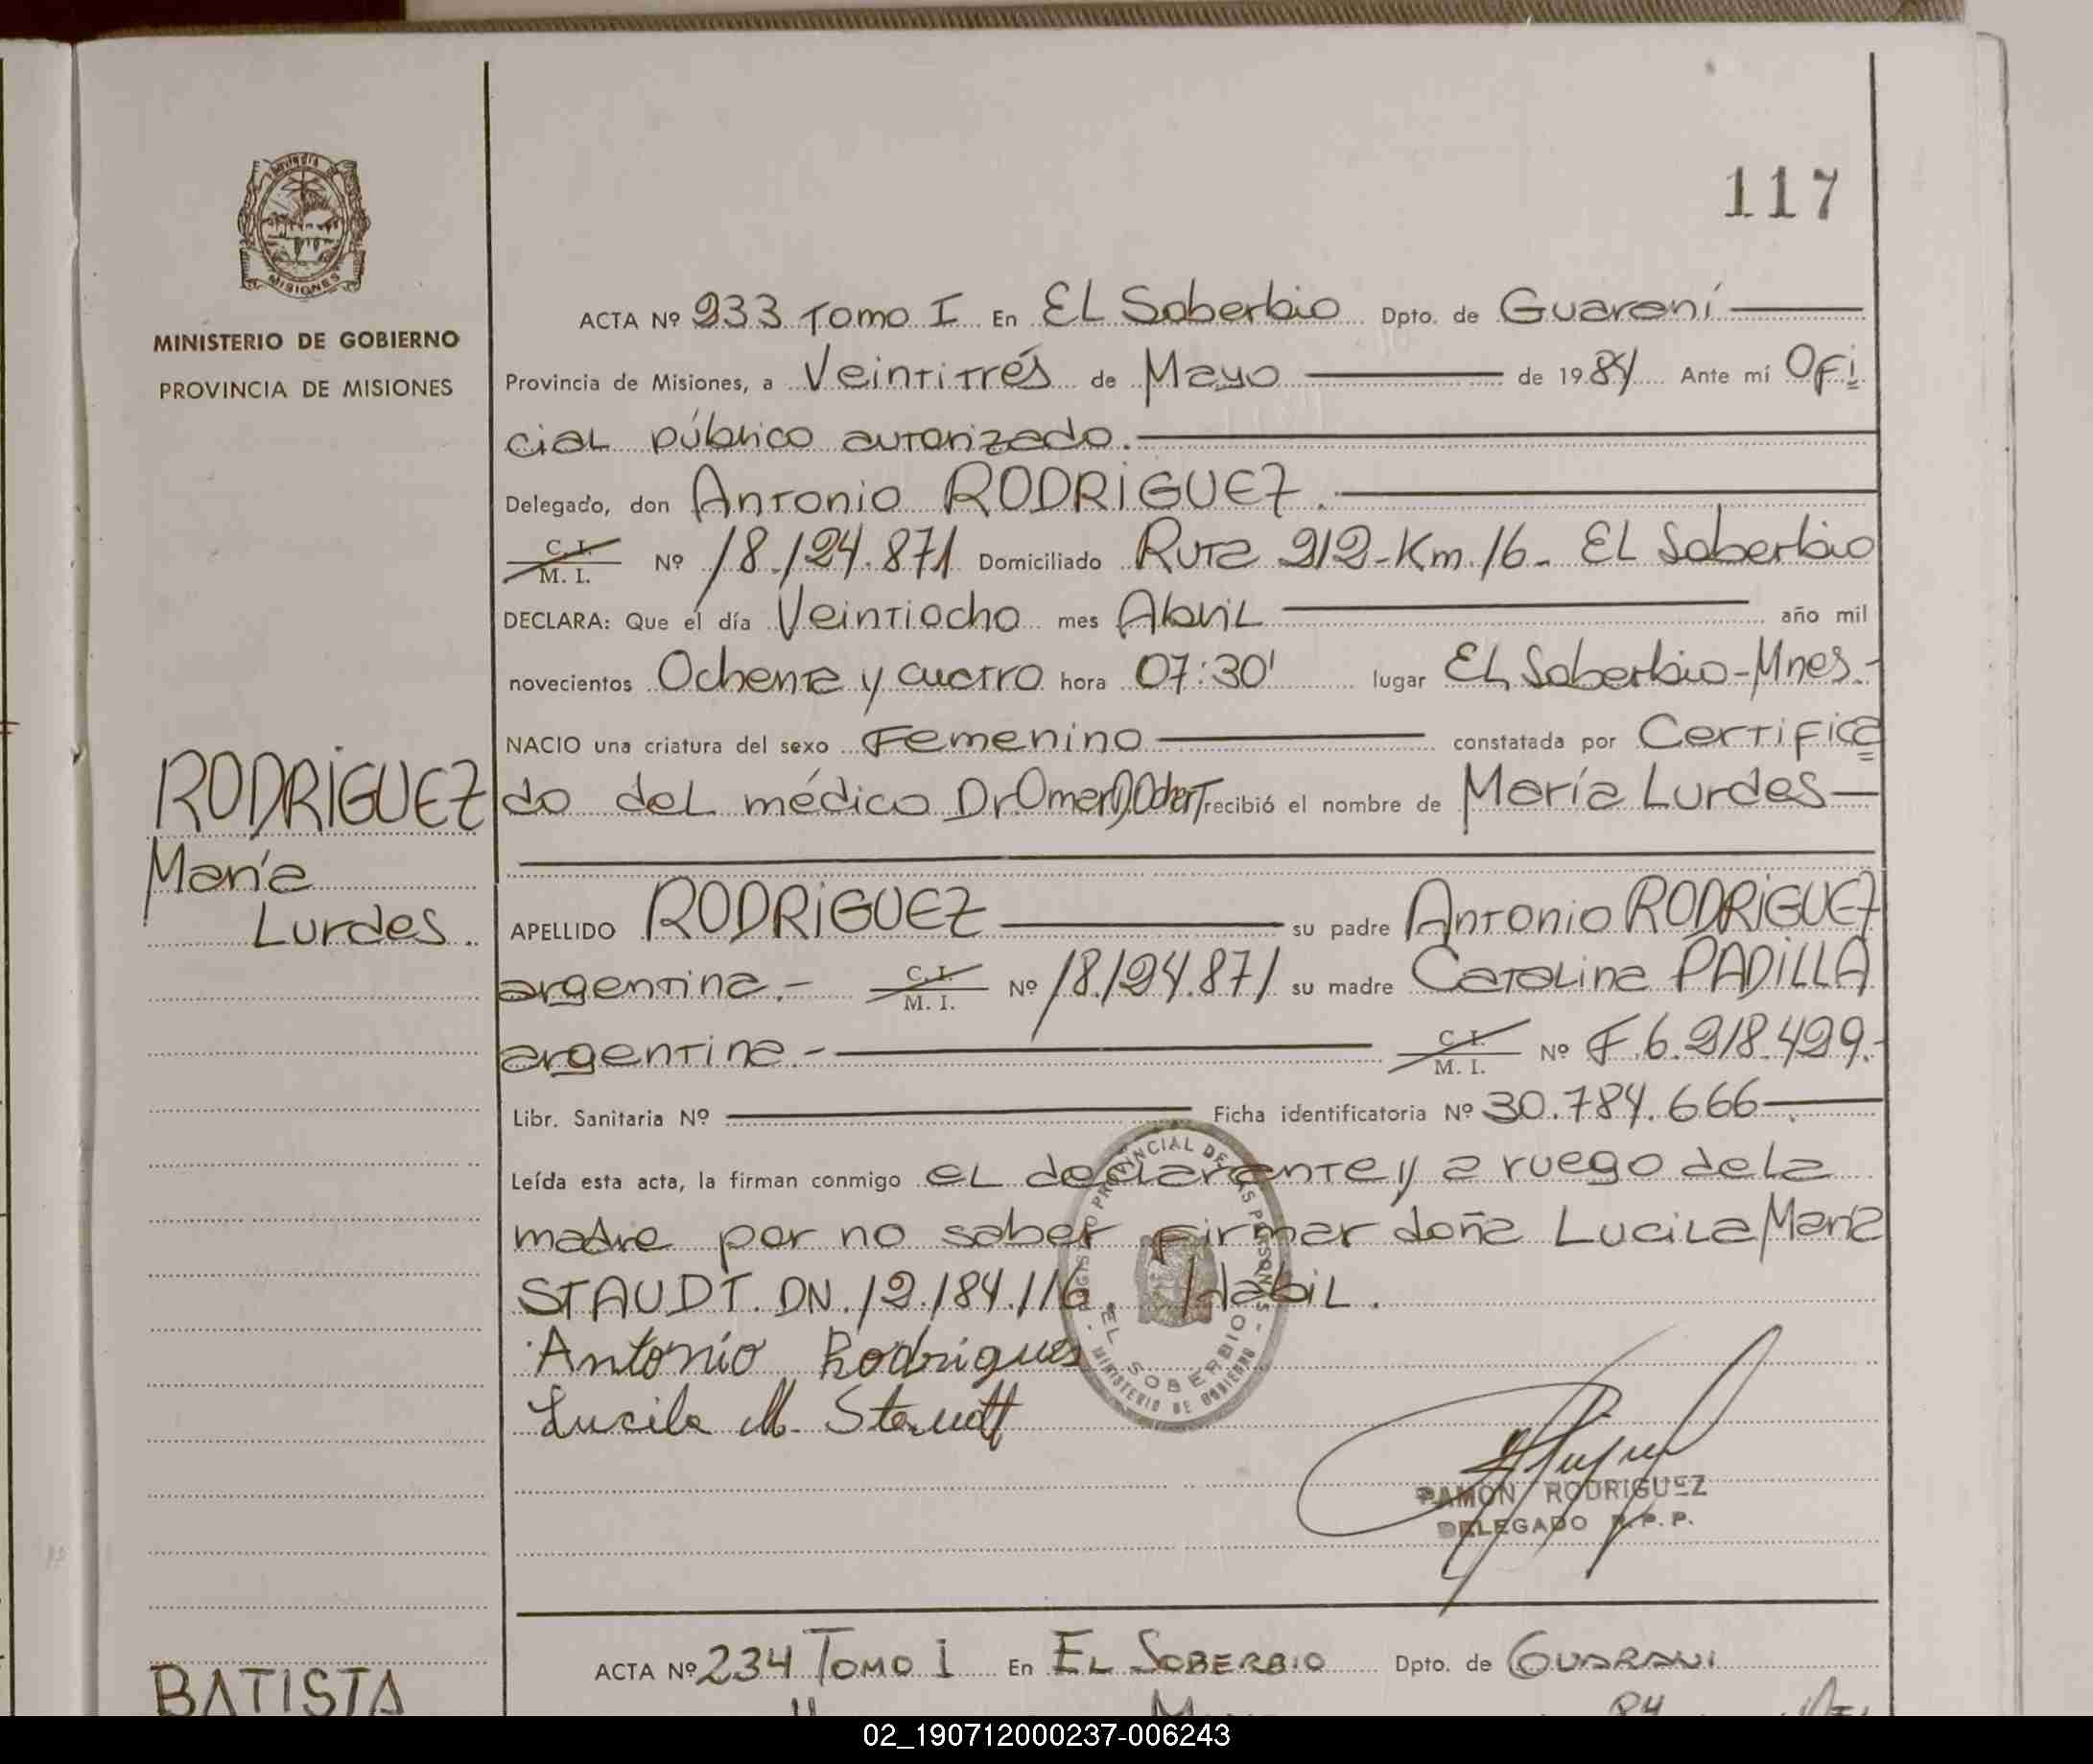 117
MINISTERIO DE GOBIERNO
PROVINCIA DE MISIONES
RODRIGUEZ
María
Lurdes.
ACTA Nº 233 Tomo I En EL Soberbio Dpto. de Guaraní
Provincia de Misiones, a Veintitrés de Mayo de 1984 Ante mí Ofi
cial público autorizado.
Delegado, don Antonio RODRIGUEZ.
C. I. / M. I. Nº 18.124.871 Domiciliado Ruta 212-Km.16- EL Soberbio
DECLARA: Que el día Veintiocho mes Abril año mil
novecientos Ochenta y cuatro hora 07:30' lugar EL Soberbio-Mnes-
NACIO una criatura del sexo Femenino constatada por Certifica
do del médico Dr. Omar recibió el nombre de María Lurdes
APELLIDO RODRIGUEZ su padre Antonio RODRIGUEZ
argentina.- C. I. / M. I. Nº 18.124.871 su madre Catalina PADILLA
argentina.- C. I. / M. I. Nº F.6.218.429.-
Libr. Sanitaria Nº Ficha identificatoria Nº 30.784.666
Leída esta acta, la firman conmigo el declarante y a ruego de la
madre por no saber firmar doña Lucila María
STAUDT. DN. 12.184.116. Habil.
Antonio Rodrigues
Lucila M. Staudt
REGISTRO PROVINCIAL DE LAS PERSONAS
EL SOBERBIO
MINISTERIO DE GOBIERNO
RAMON RODRIGUEZ
DELEGADO R.P.P.
BATISTA
ACTA Nº 234 TOMO I En EL SOBERBIO Dpto. de GUARANI
84
02_190712000237-006243